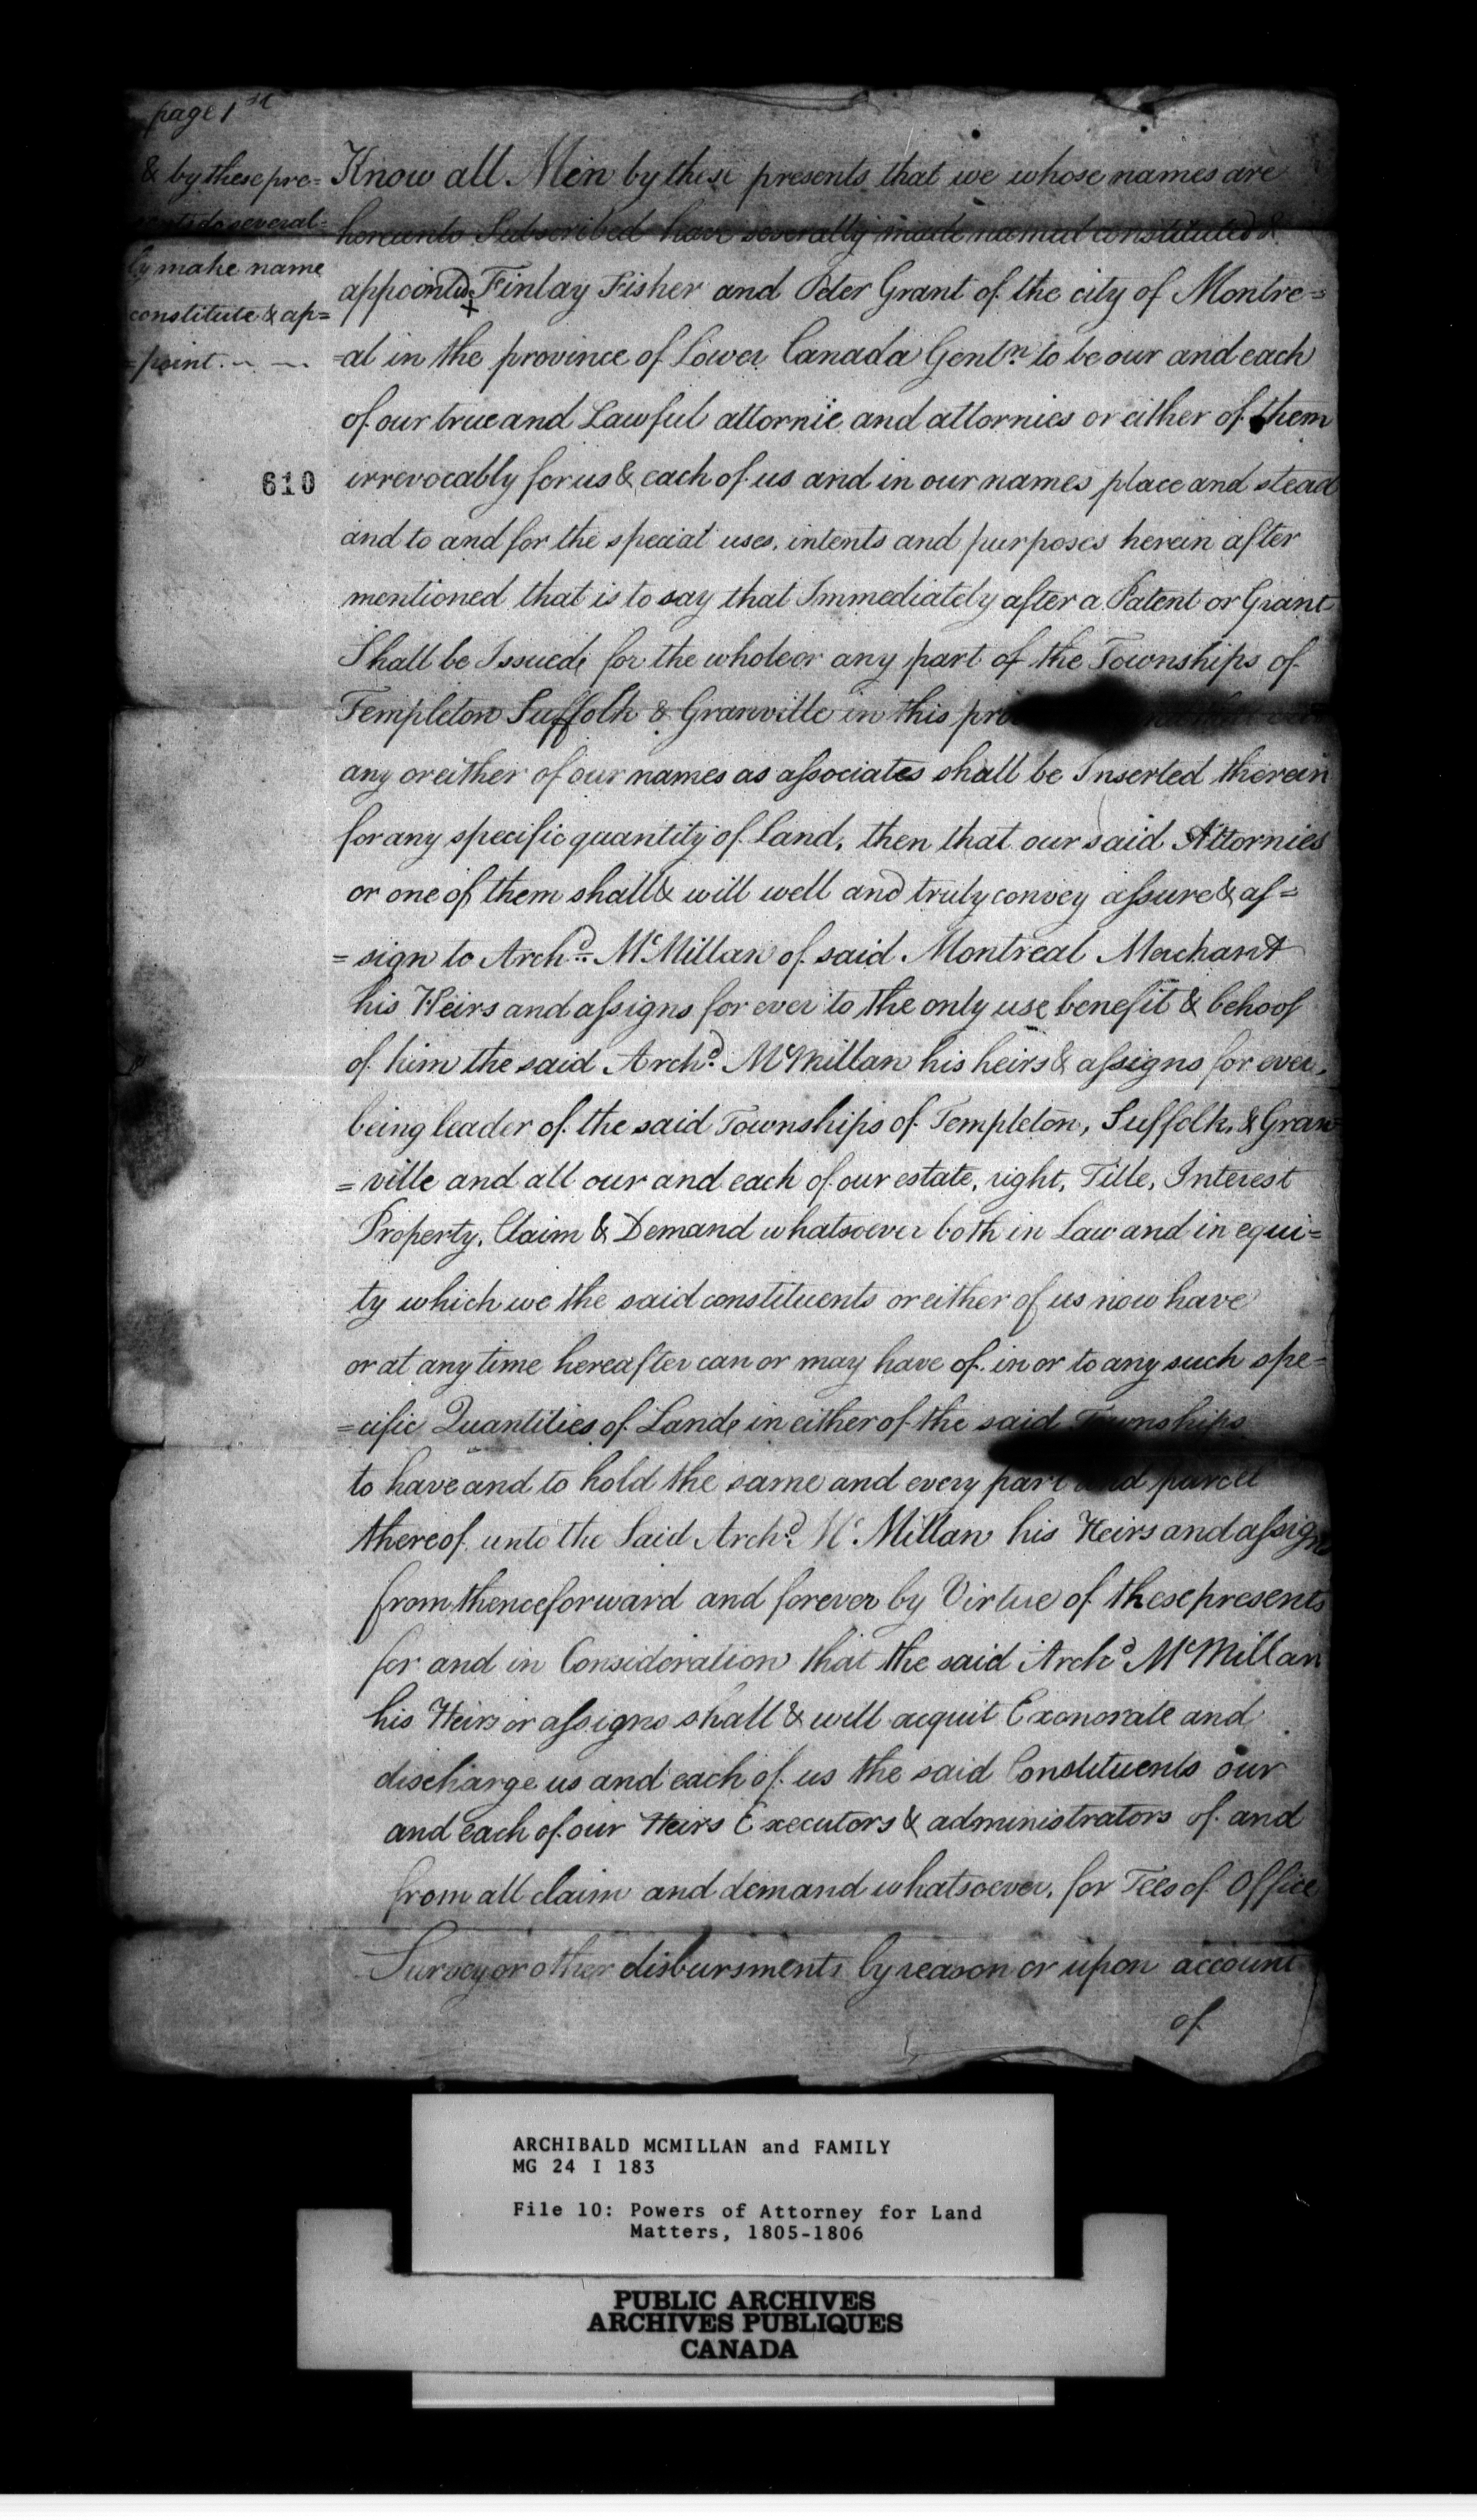 page 1st
& by these pre=
several=
ly make name
constitute & ap=
=point
610
Know all Men by these presents that we whose names are
hereunto Subscribed have severally made named constituted &
appointed Finlay Fisher and Peter Grant of the city of Montre=
=al in the province of Lower Canada Gentn to be our and each
of our true and Lawful attornie and attornies or either of them
irrevocably for us & each of us and in our names place and stead
and to and for the special uses, intents and purposes herein after
mentioned that is to say that Immediately after a Patent or Grant
Shall be Issued for the whole or any part of the Townships of
Templeton Suffolk & Granville in this
any or either of our names as associates shall be Inserted therein
for any specific quantity of Land, then that our said Attornies
or one of them shall & will well and truly convey assure & as=
=sign to Archd. McMillan of said Montreal Merchant
his Heirs and assigns for ever to the only use benefit & behoof
of him the said Archd. McMillan his heirs & assigns for ever,
being leader of the said Townships of Templeton, Suffolk, & Gran
=ville and all our and each of our estate, right, Title, Interest
Property, Claim & Demand whatsoever both in Law and in equi=
ty which we the said constituents or either of us now have
or at any time hereafter can or may have of in or to any such spe=
=cific Quantities of Land in either of the said Townships
to have and to hold the same and every part and parcel
thereof unto the Said Archd. McMillan his Heirs and assigns
from thenceforward and forever by Virtue of these presents
for and in Consideration that the said Archd McMillan
his Heirs or assigns shall & will acquit Exonorate and
discharge us and each of us the said Constituents our
and each of our Heirs Executors & administrators of and
from all claim and demand whatsoever, for Fees of Office
Survey or other disbursments by reason or upon account
of
ARCHIBALD MCMILLAN and FAMILY
MG 24 I 183
File 10: Powers of Attorney for Land
Matters, 1805-1806
PUBLIC ARCHIVES
ARCHIVES PUBLIQUES
CANADA